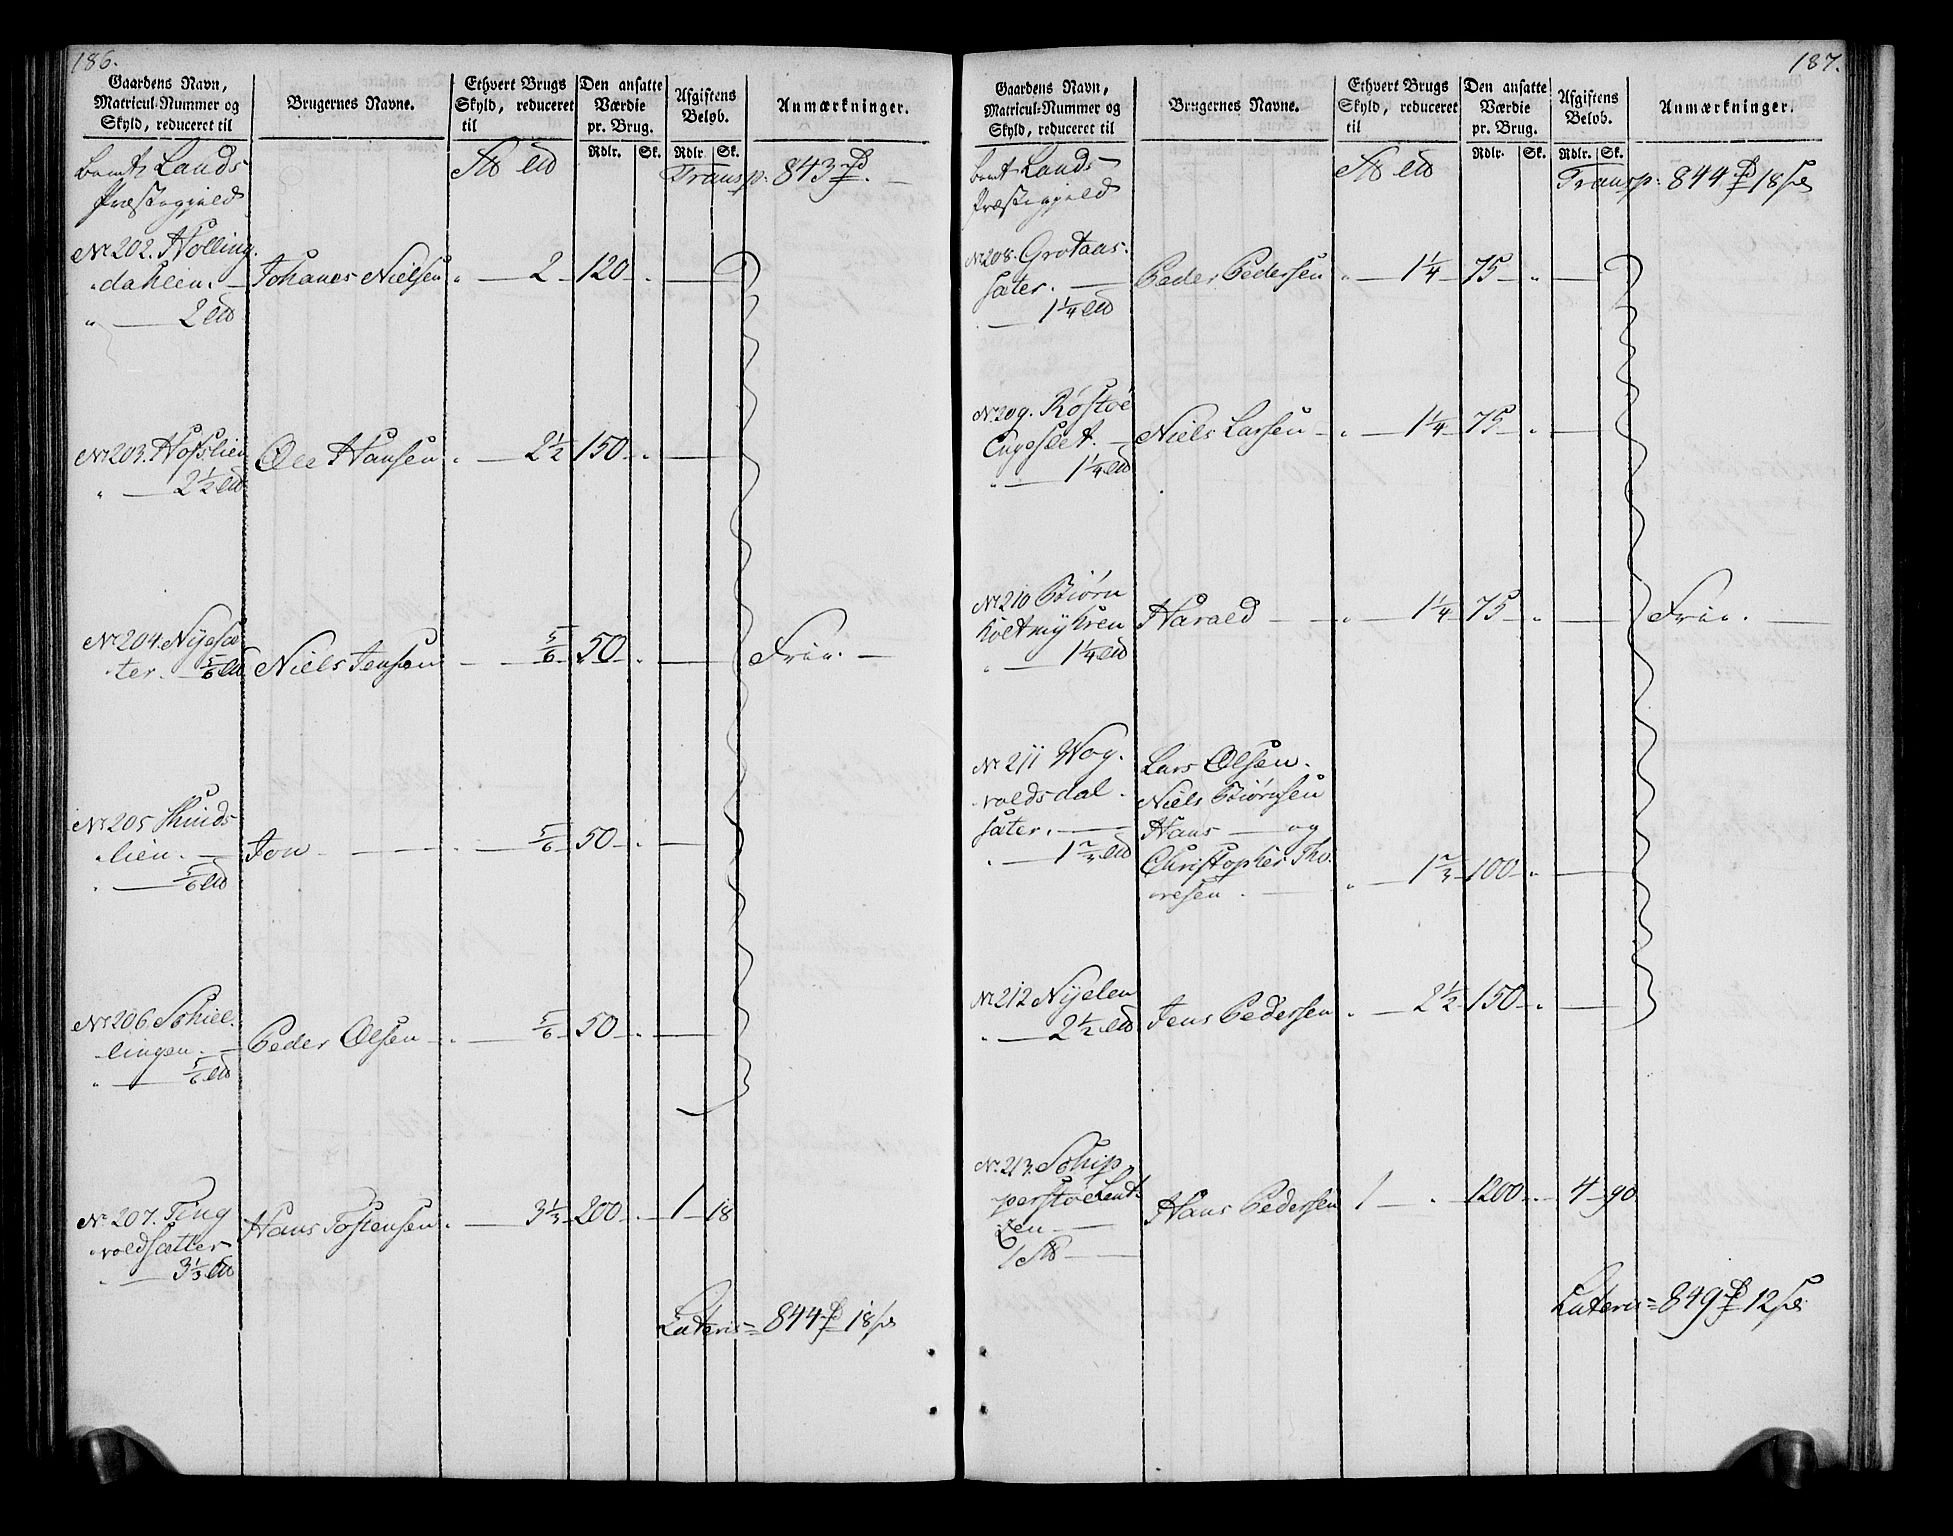 186.
Gaardens Navn, Matricul-Nummer og Skyld, reduceret til
Brugernes Navne.
Ethvert Brugs Skyld, reduceret til
Den ansatte Værdie pr. Brug.
Afgiftens Beløb.
Anmærkninger.
Rdlr. Sk. Rdlr. Sk.
Lands
Præstegield
Transp: 843
No 202. Holling
dahlen. Johanes Nielsen 2 120
2
No 203. Hofslien Ole Hansen 2½ 150
2½
No 204. Nyesæ
ter. 5/6 Niels Jensen 5/6 50 Frie.
No 205
lien. Jon 5/6 50
5/6
No 206. Schiel
lingen. Peder Olsen 5/6 50
5/6
No 207. Ting
voldsætter Hans Tostensen 3⅓ 200 1 18
3⅓
Lateris 844 18
187.
Gaardens Navn, Matricul-Nummer og Skyld, reduceret til
Brugernes Navne.
Ethvert Brugs Skyld, reduceret til
Den ansatte Værdie pr. Brug.
Afgiftens Beløb.
Anmærkninger.
Rdlr. Sk. Rdlr. Sk.
Lands
Præstegield
Transp: 844 18
No 208. Grotaas
sæter. Peder Pedersen 1¼ 75
1¼
No 209. Røstøe
Engeslet. Niels Larsen 1¼ 75
1¼
No 210 Biørn
Harald 1¼ 75 Frie.
1¼
No 211 Wog
voldsdal
sæter.
1⅔
Lars Olsen.
Niels Biørnsen
Hans og
Christopher Tho
resen. 1⅔ 100
No 212 Nyelen
2½ Jens Pedersen 2½ 150
No 213. Schip
perstøe
Hans Pedersen 1 1200 4 90
1
Lateris 849 12